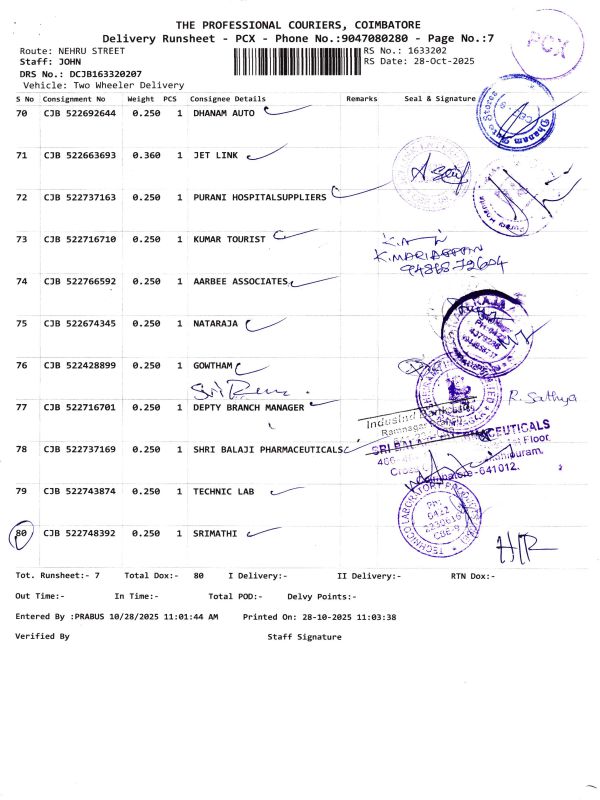 THE PROFESSIONAL COURIERS, COIMBATORE
Delivery Runsheet - PCX - Phone No.:9047080280 - Page No.:7
PCX
Route: NEHRU STREET RS No.: 1633202
Staff: JOHN RS Date: 28-Oct-2025
DRS No.: DCJB163320207
Vehicle: Two Wheeler Delivery
S No Consignment No Weight PCS Consignee Details Remarks Seal & Signature
70 CJB 522692644 0.250 1 DHANAM AUTO
71 CJB 522663693 0.360 1 JET LINK
72 CJB 522737163 0.250 1 PURANI HOSPITALSUPPLIERS
73 CJB 522716710 0.250 1 KUMAR TOURIST
K.MARIAPPAN
74 CJB 522766592 0.250 1 AARBEE ASSOCIATES
75 CJB 522674345 0.250 1 NATARAJA
76 CJB 522428899 0.250 1 GOWTHAM
R. Sathya
77 CJB 522716701 0.250 1 DEPTY BRANCH MANAGER
78 CJB 522737169 0.250 1 SHRI BALAJI PHARMACEUTICALS
79 CJB 522743874 0.250 1 TECHNIC LAB
80 CJB 522748392 0.250 1 SRIMATHI
Tot. Runsheet:- 7 Total Dox:- 80 I Delivery:- II Delivery:- RTN Dox:-
Out Time:- In Time:- Total POD:- Delvy Points:-
Entered By :PRABUS 10/28/2025 11:01:44 AM Printed On: 28-10-2025 11:03:38
Verified By Staff Signature